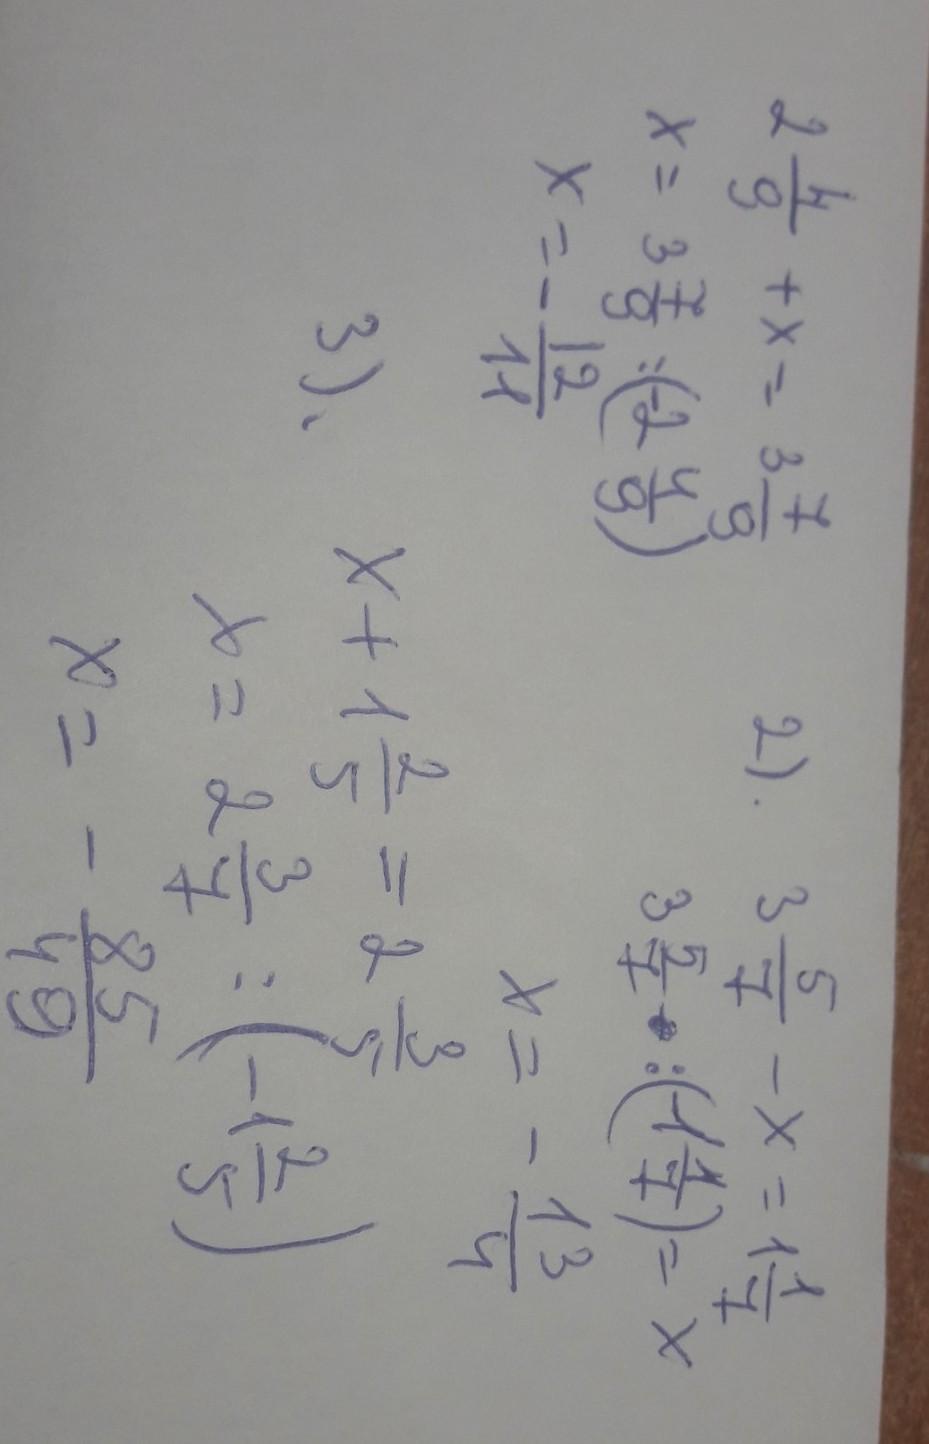 2 4/9 + x = 3 7/9
x = 3 7/9 : (-2 4/9)
x = - 12/11
2). 3 5/7 - x = 1 1/7
3 5/7 : (-1 1/7) = x
x = - 13/4
3). x + 1 2/5 = 2 3/5
x = 2 3/7 : (-1 2/5)
x = - 85/49